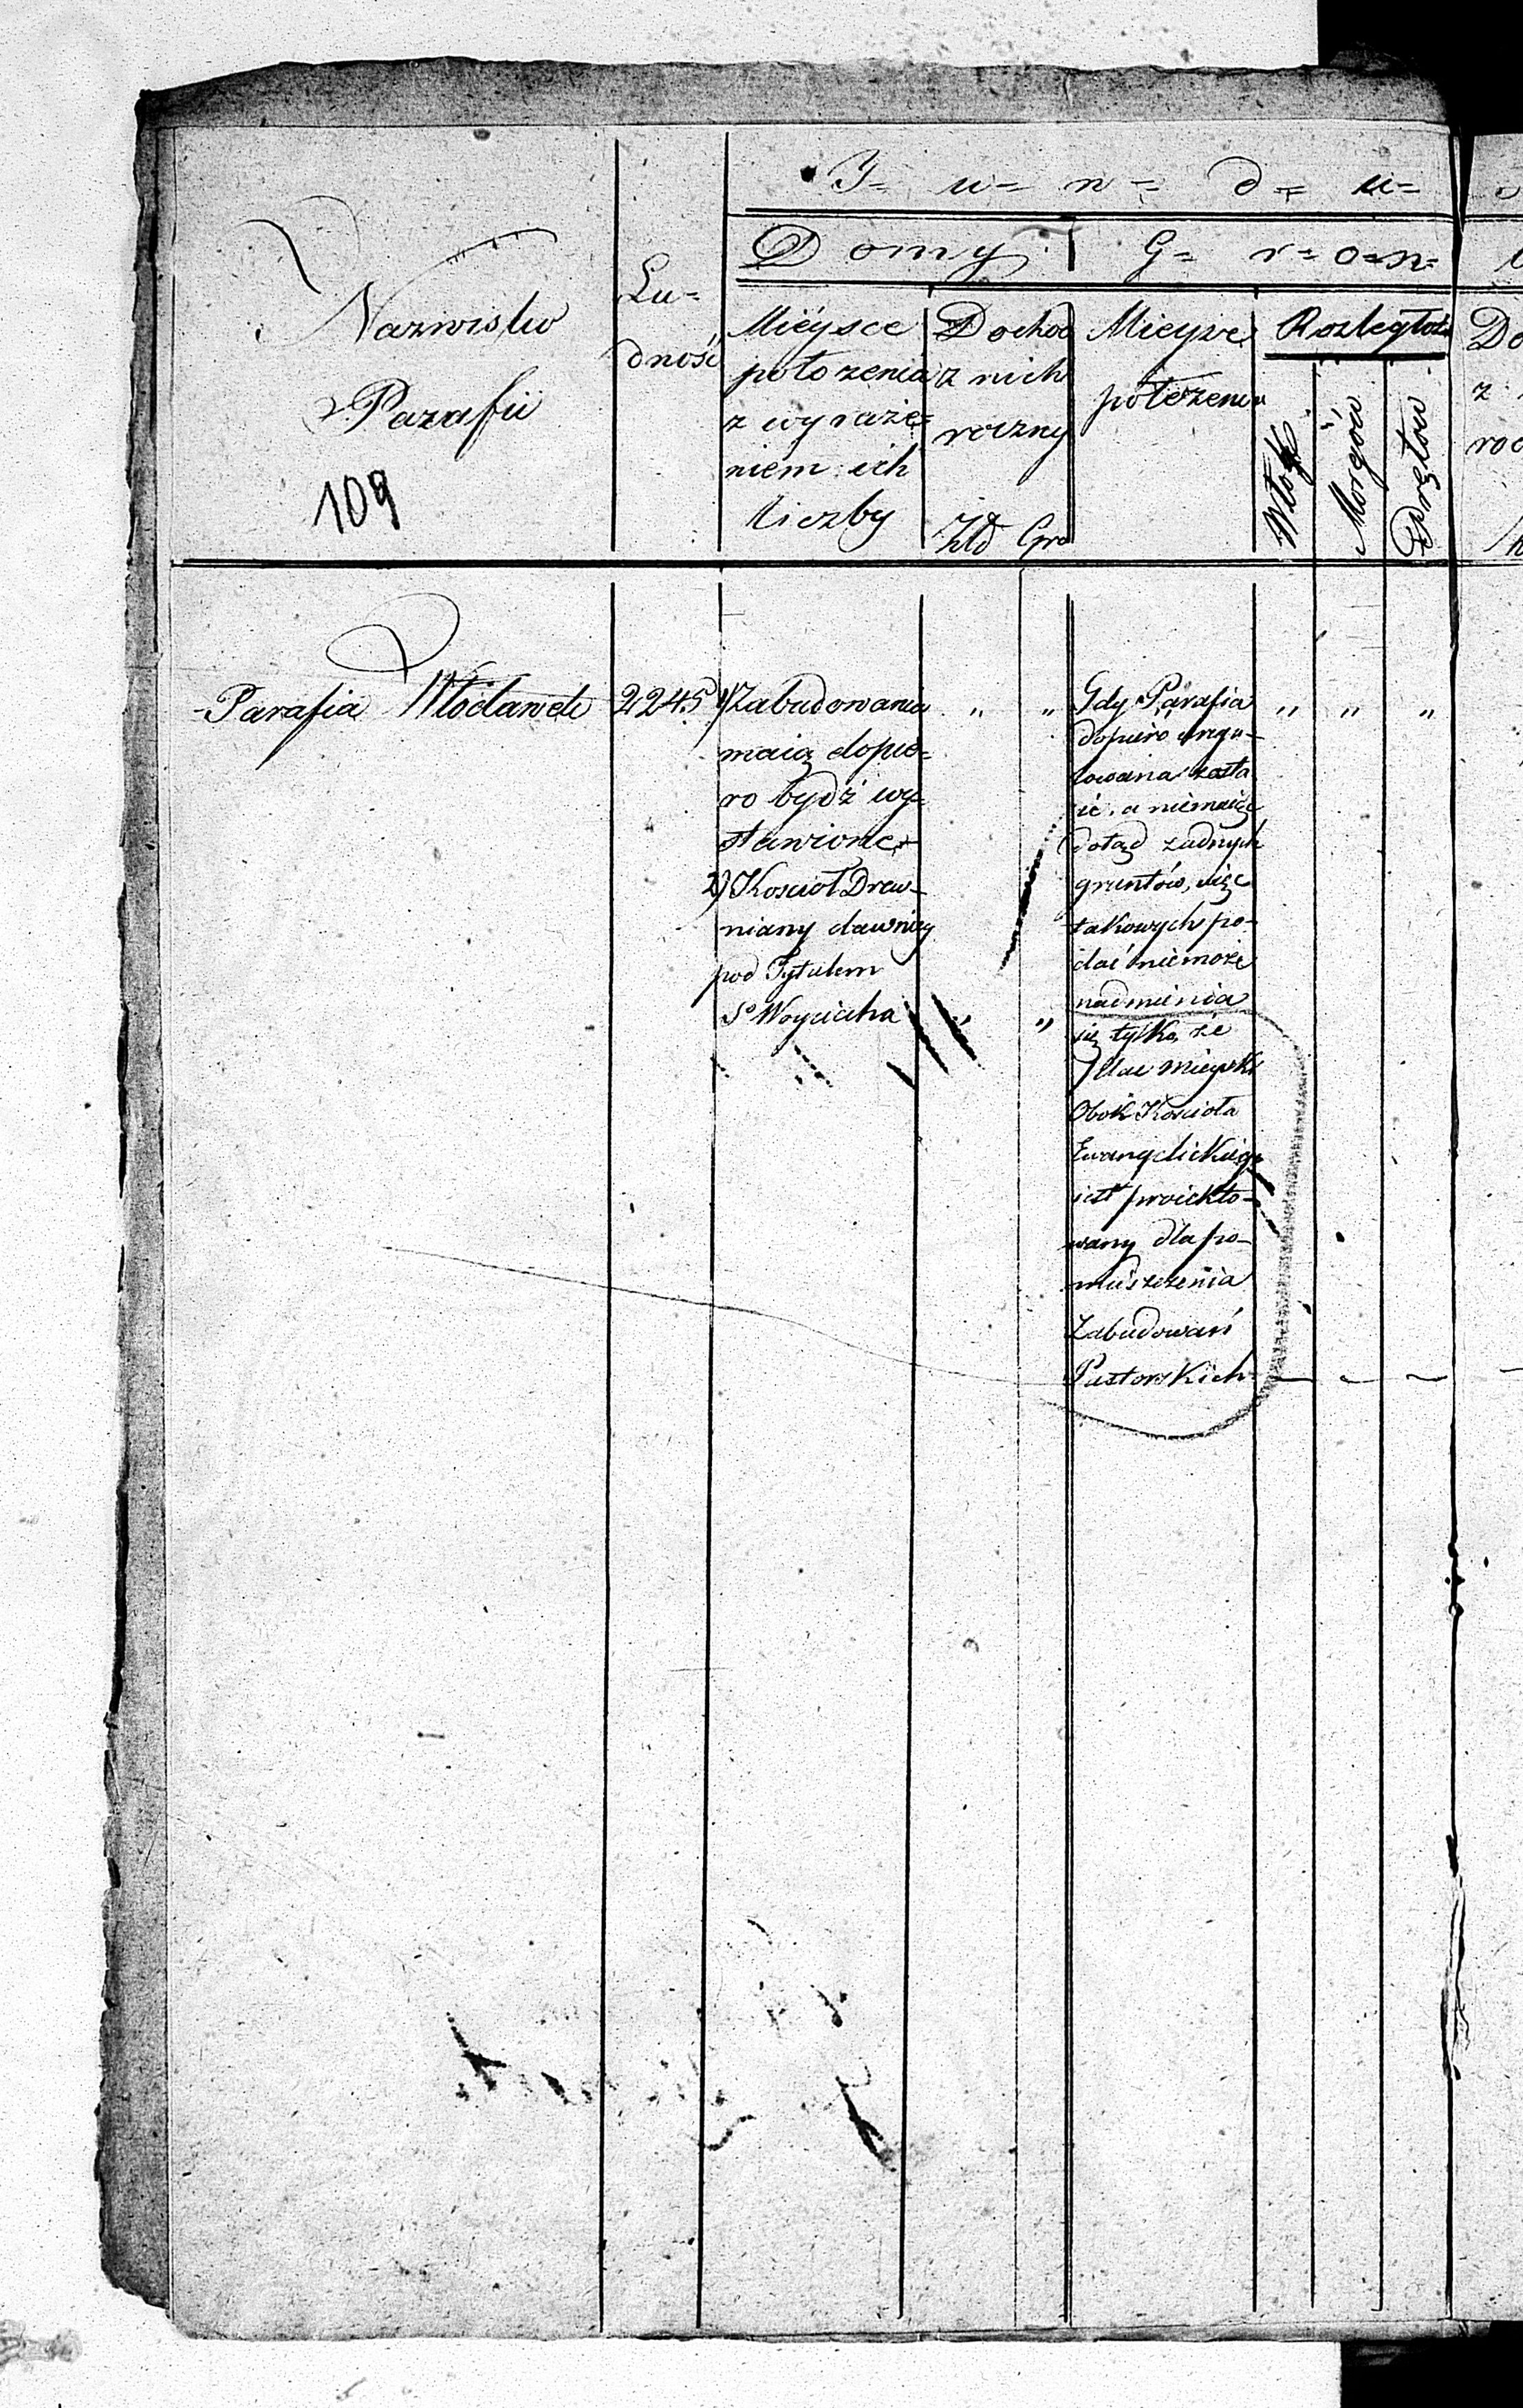 F= u= n= d= u=
Domy
G= r= o= n=
Nazwisko
Parafii
109
Lu=
dność
Mieysce
położenia
z wyraże=
niem ich
liczby
Dochod
z nich
roczny
Złd Gro
Mieysce
położenia
Rozległość
Włók
Morgów
Prętów
Do
z
roc
Parafia Włocławek
2245
1) Zabudowania
maią dopie=
ro bydź wy=
stawione
2) Kościoł Drew=
niany dawniey
pod Tytułem
So Woyciecha
" "
" "
Gdy Parafia
dopiero uregu=
lowana zosta
ie, a niemaiąc
dotąd żadnych
gruntów, więc
takowych po=
dać niemoże
nadmienia
się tylko, że
Plac mieyski
Obok Kościoła
Ewangelickiego
iest proiekto=
wany dla po=
mieszczenia
Zabudowań
Pastorskich
" " "